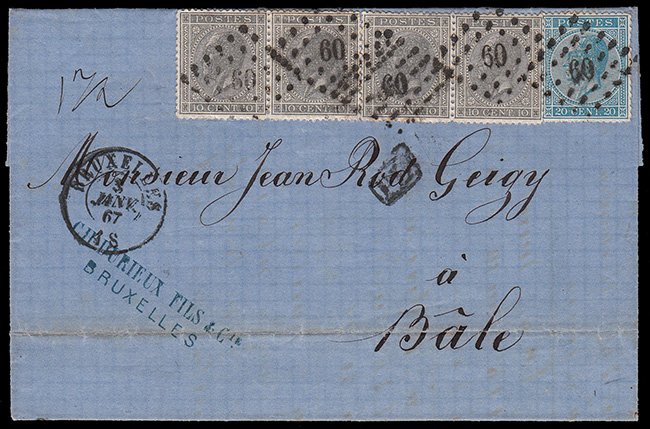 POSTES POSTES POSTES POSTES POSTES
60 60 60 60 60
10 CENT. 10 10 CENT. 10 10 CENT. 10 10 CENT. 10 20 CENT. 20
1 7/2
BRUXELLES
3
JANV.
67
Monsieur Jean Rod Geigy
à
Bâle
FILS & Cie
BRUXELLES